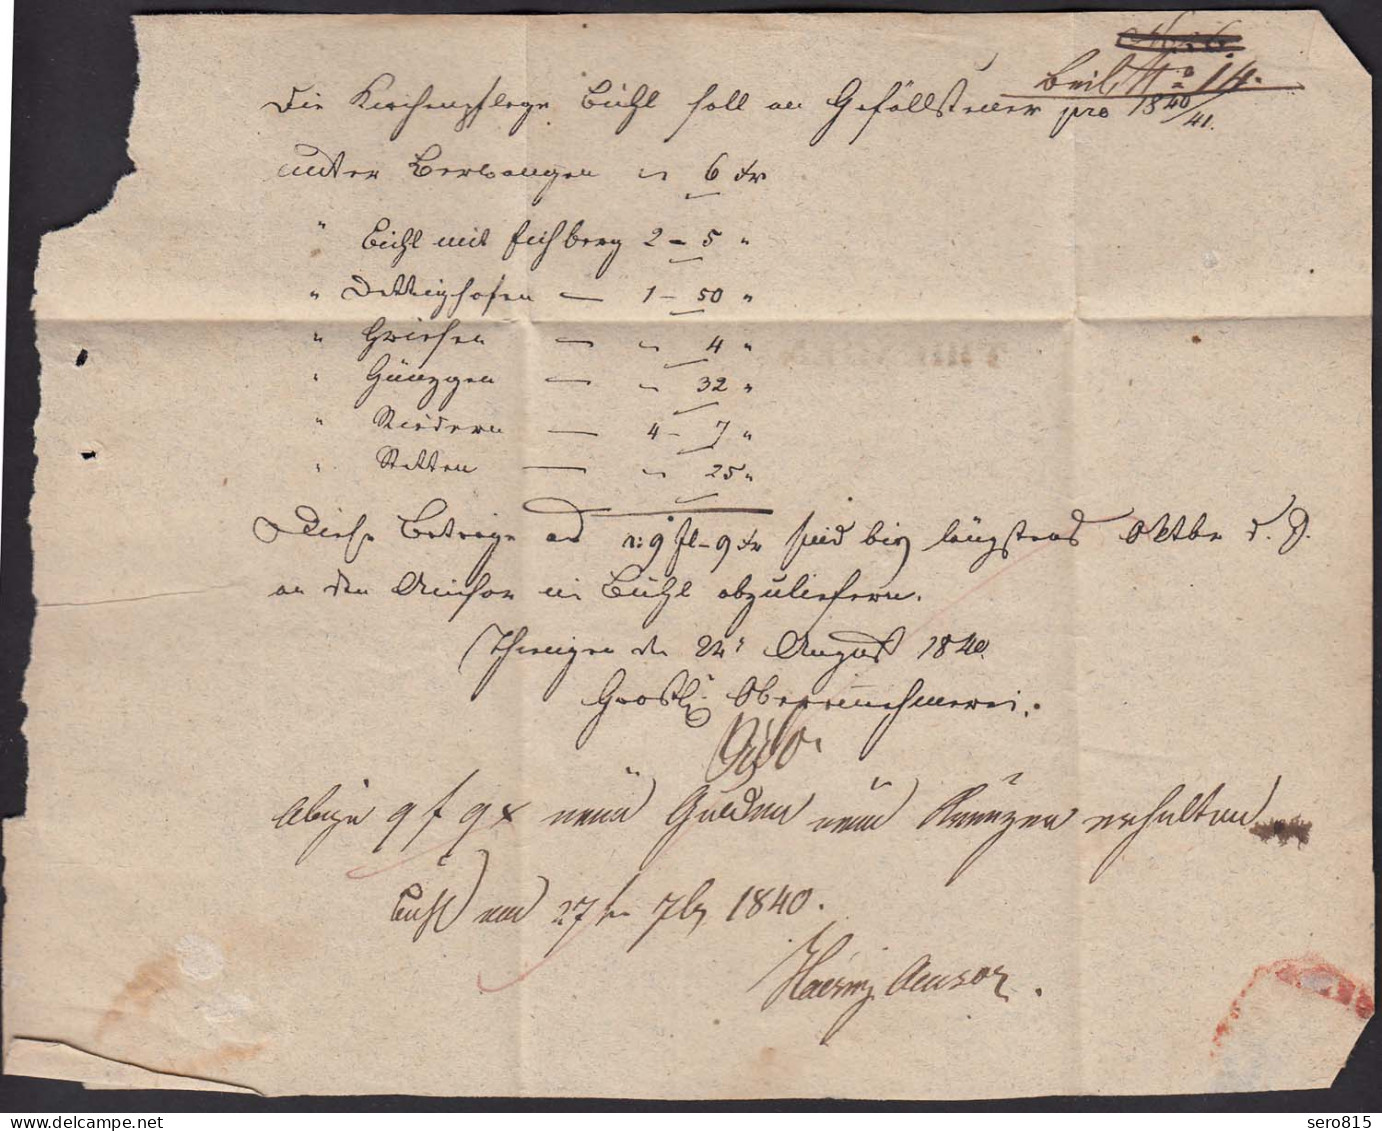 Beil. No 14.
Die Kirchenpflege Bühl soll an Gefällsteuer pro 1840/41.
unter Berwangen „ 6 Xr
„ Bühl mit Eichberg 2 – 5 „
„ Dettighofen — 1 – 50 „
„ Griesen — „ 4 „
„ Günzgen — „ 32 „
„ Riedern — 4 – 7 „
„ Stetten — „ 25 „
Diese Beträge ad 9 fl – 9 Xr sind bis längstens Oktbr d. J.
an den Accisor in Bühl abzuliefern.
Thiengen den 24t August 1840.
Grosh. Obereinnehmerei.
Obige 9 f 9 x neün Gulden neün Kreüzer erhalten
Bühl den 27ten 7br 1840.
Accisor.
sero815